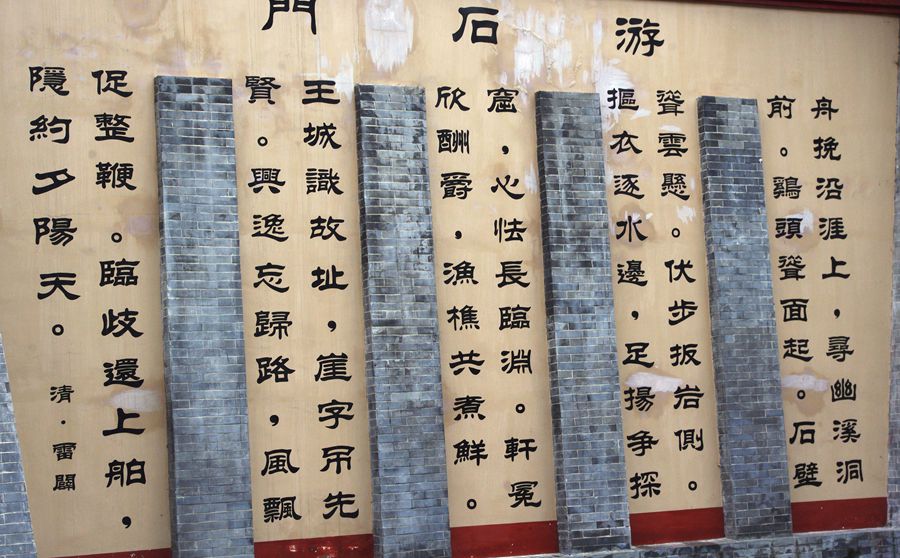 游石門
舟挽沿涯上，尋幽溪洞
前。鷄頭聳面起。石壁
聳雲懸。伏步扳岩側。
摳衣逐水邊，足揚争探
窟，心怯長臨淵。軒冕
欣酬爵，漁樵共煮鮮。
王城識故址，崖字吊先
賢。興逸忘歸路，風飄
促整鞭。臨歧還上舶，
隱約夕陽天。
清·雷闢